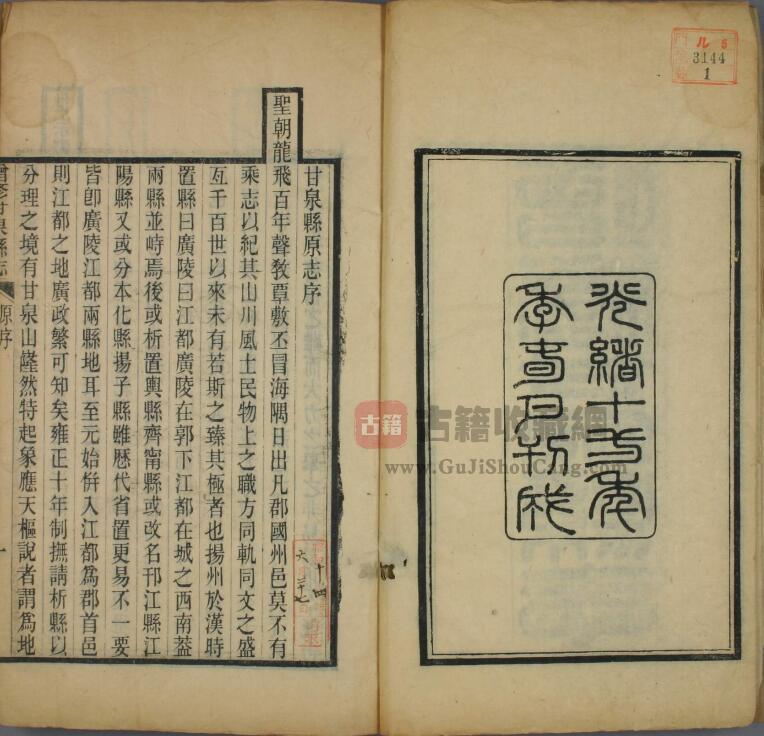 ル 5
3144
1
光緒十年
季春月刊成
甘泉縣原志序
聖朝龍飛百年聲敎覃敷丕冒海隅日出凡郡國州邑莫不有
乘志以紀其山川風土民物上之職方同軌同文之盛
亙千百世以來未有若斯之臻其極者也揚州於漢時
置縣曰廣陵曰江都廣陵在郭下江都在城之西南葢
兩縣並峙焉後或析置輿縣齊甯縣或改名邗江縣江
陽縣又或分本化縣揚子縣雖歷代省置更易不一要
皆卽廣陵江都兩縣地耳至元始倂入江都爲郡首邑
則江都之地廣政繁可知矣雍正十年制撫請析縣以
分理之境有甘泉山隆然特起象應天樞說者謂爲地
增修甘泉縣志 原序 一
古籍 古籍收藏網
www.GuJiShouCang.com